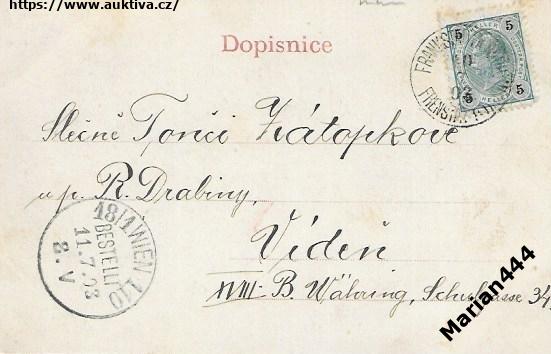 https://www.auktiva.cz/
Dopisnice
5 5
5 5
FRANKSTADT
Slečně Tonči Zátopkové
u p. R. Drabiny,
Vídeň
XVIII. B. Währing, Schulgasse 34,
18/1 WIEN 110
BESTELLT
11.7.03
8.V
Marian444